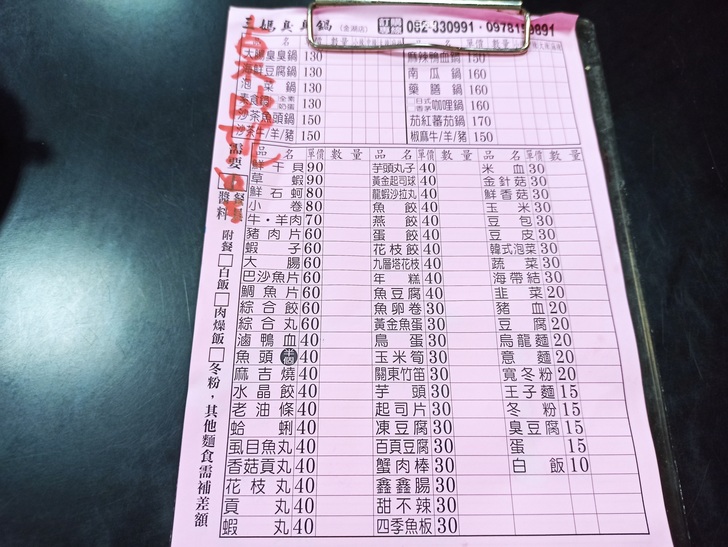 三媽臭臭鍋 (金湖店) 訂購專線 082-330991·0978199891
大腸臭臭鍋 130
海鮮豆腐鍋 130
泡菜鍋 130
素食鍋 □全素 □奶蛋 130
沙茶魚頭鍋 150
沙茶牛/羊/豬 150
麻辣鴨血鍋 150
南瓜鍋 160
藥膳鍋 160
□日式 咖哩鍋 160
茄紅蕃茄鍋 170
椒麻牛/羊/豬 150
品名 單價 數量
鮮干貝 90
草蝦 90
鮮石蚵 80
小卷 80
牛·羊肉 70
豬肉片 60
蝦子 60
大腸 60
巴沙魚片 60
鯛魚片 60
綜合餃 60
綜合丸 60
滷鴨血 40
魚頭 40
麻吉燒 40
水晶餃 40
老油條 40
蛤蜊 40
虱目魚丸 40
香菇貢丸 40
花枝丸 40
貢丸 40
蝦丸 40
品名 單價 數量
芋頭丸子 40
黃金起司球 40
龍蝦沙拉丸 40
魚餃 40
燕餃 40
蛋餃 40
花枝餃 40
九層塔花枝 40
年糕 40
魚豆腐 40
魚卵卷 30
黃金魚蛋 30
鳥蛋 30
玉米筍 30
關東竹笛 30
芋頭 30
起司片 30
凍豆腐 30
百頁豆腐 30
蟹肉棒 30
鑫鑫腸 30
甜不辣 30
四季魚板 30
品名 單價 數量
米血 30
金針菇 30
鮮香菇 30
玉米 30
豆包 30
豆皮 30
韓式泡菜 30
蔬菜 30
海帶結 30
韭菜 20
豬血 20
豆腐 20
烏龍麵 20
意麵 20
寬冬粉 20
王子麵 15
冬粉 15
臭豆腐 15
蛋 15
白飯 10
附餐□白飯□肉燥飯□冬粉，其他麵食需補差額